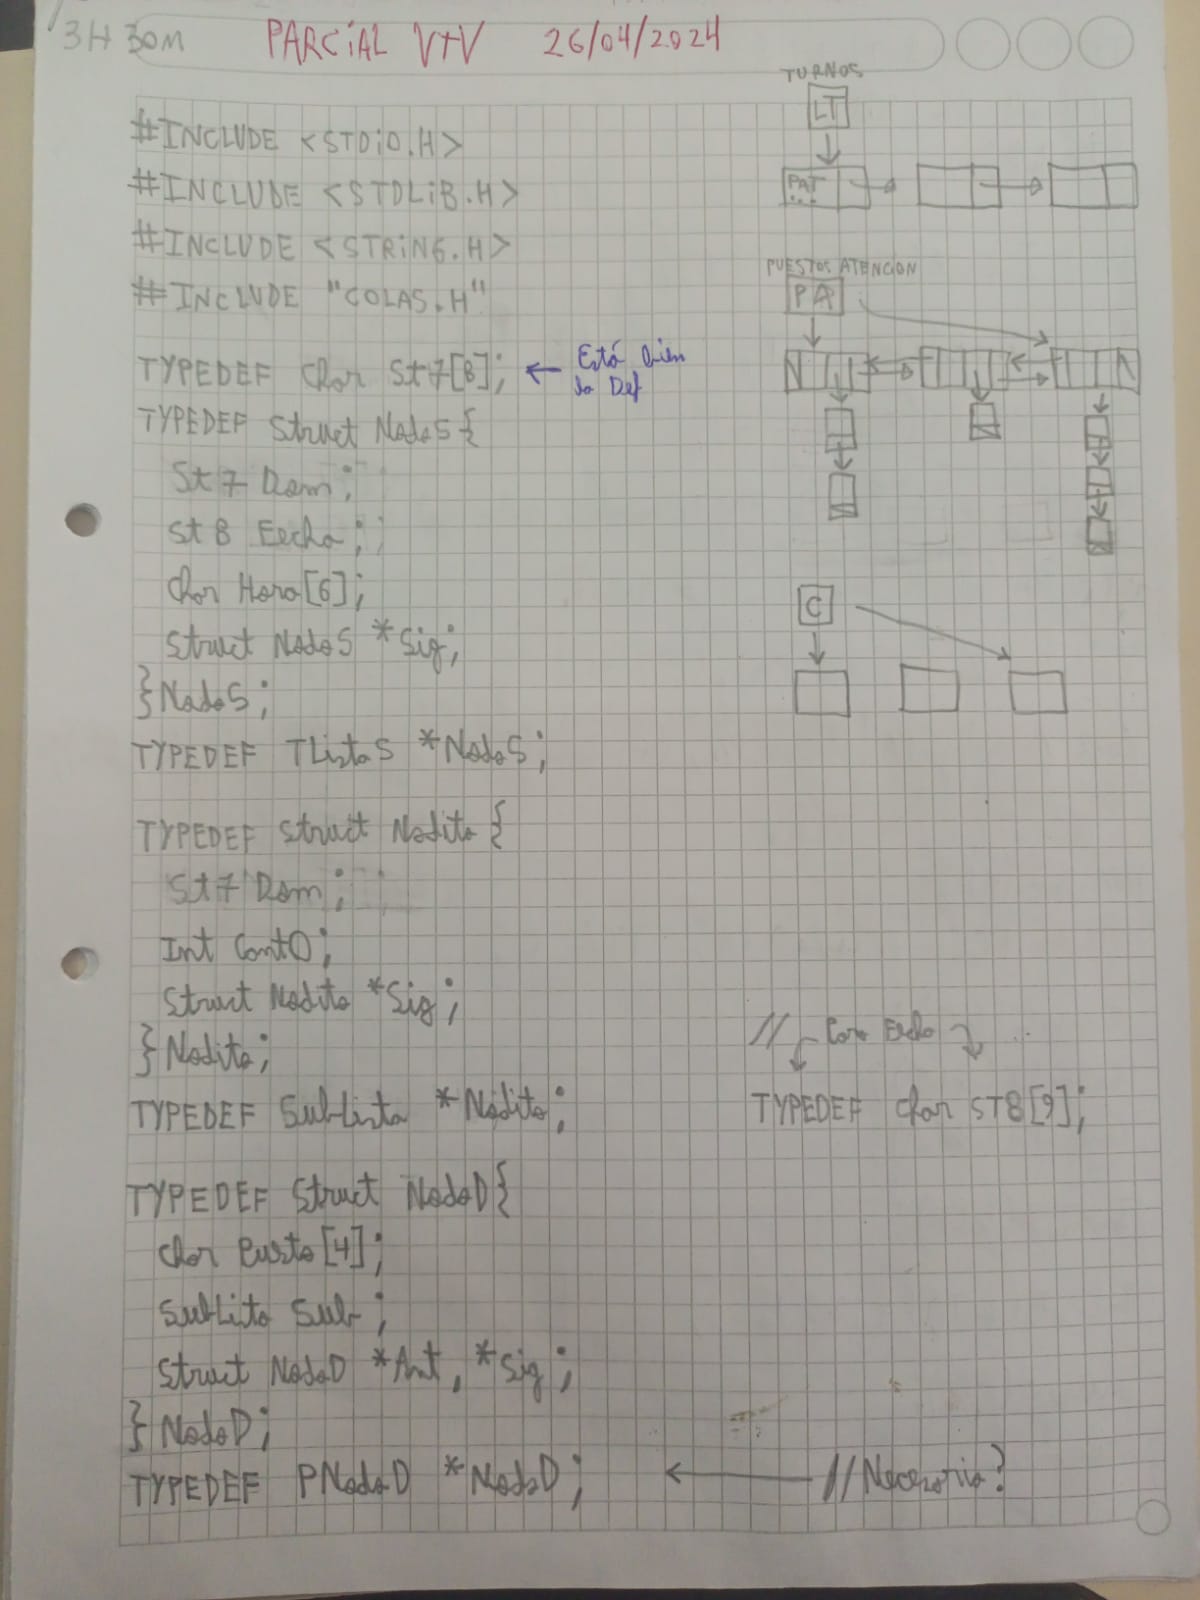 3H 30m
PARCIAL VTV 26/04/2024
#INCLUDE <STDIO.H>
#INCLUDE <STDLIB.H>
#INCLUDE <STRING.H>
#INCLUDE "COLAS.H"
TYPEDEF Char St7[8]; ← Está bien la Def
TYPEDEF Struct NodoS{
St7 Dom;
St8 Fecha;
Char Hora[6];
Struct NodoS *Sig;
}NodoS;
TYPEDEF TListaS *NodoS;
TYPEDEF Struct Nodito{
St7 Dom;
Int CantO;
Struct Nodito *Sig;
}Nodito;
TYPEDEF SubLista *Nodito;
TYPEDEF Struct NodoD{
Char Puesto[4];
SubLista Sub;
Struct NodoD *Ant, *Sig;
}NodoD;
TYPEDEF PNodoD *NodoD; ← //Necesario?
TURNOS
LT
PAT
...
PUESTOS ATENCION
PA
N
N
C
// Para Fecha
TYPEDEF Char ST8[9];